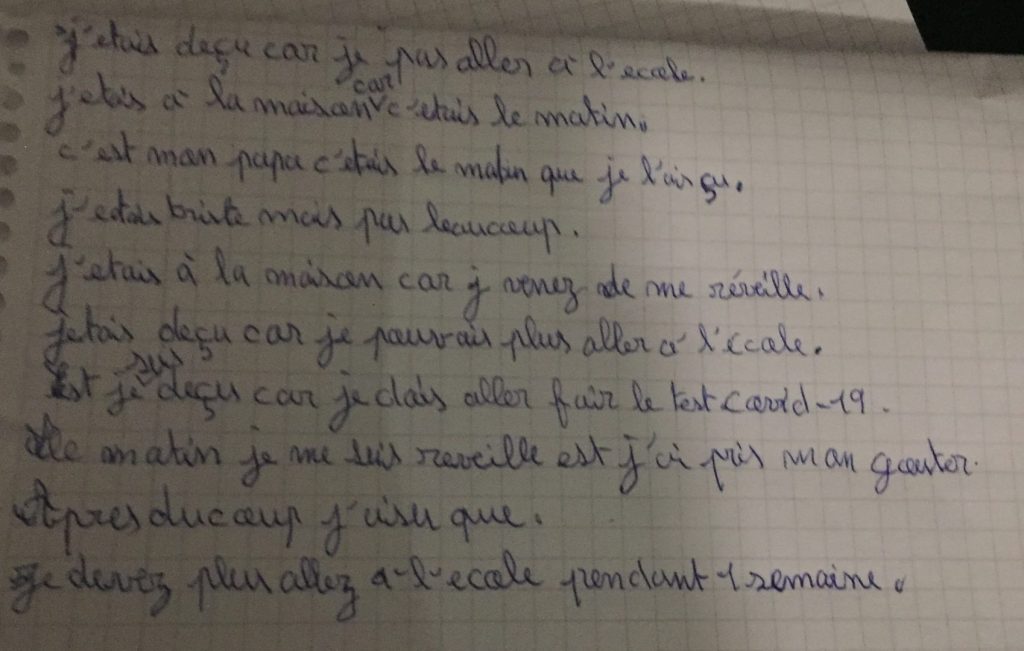 j'etais deçu car je pas aller a l'ecole.
j'etais à la maison car c'etais le matin.
c'est mon papa c'etais le matin que je l'ais çu.
j'etais triste mais pas beaucoup.
j'etais à la maison car j venez de me réveille.
jetais deçu car je pouvais plus aller a l'école.
Est je suis deçu car je dois aller fair le test covid-19.
Le matin je me suis reveille est j'ai pris mon gouter.
Apres ducoup j'aisu que.
je devez plus allez a-l-ecole pendant 1 semaine.